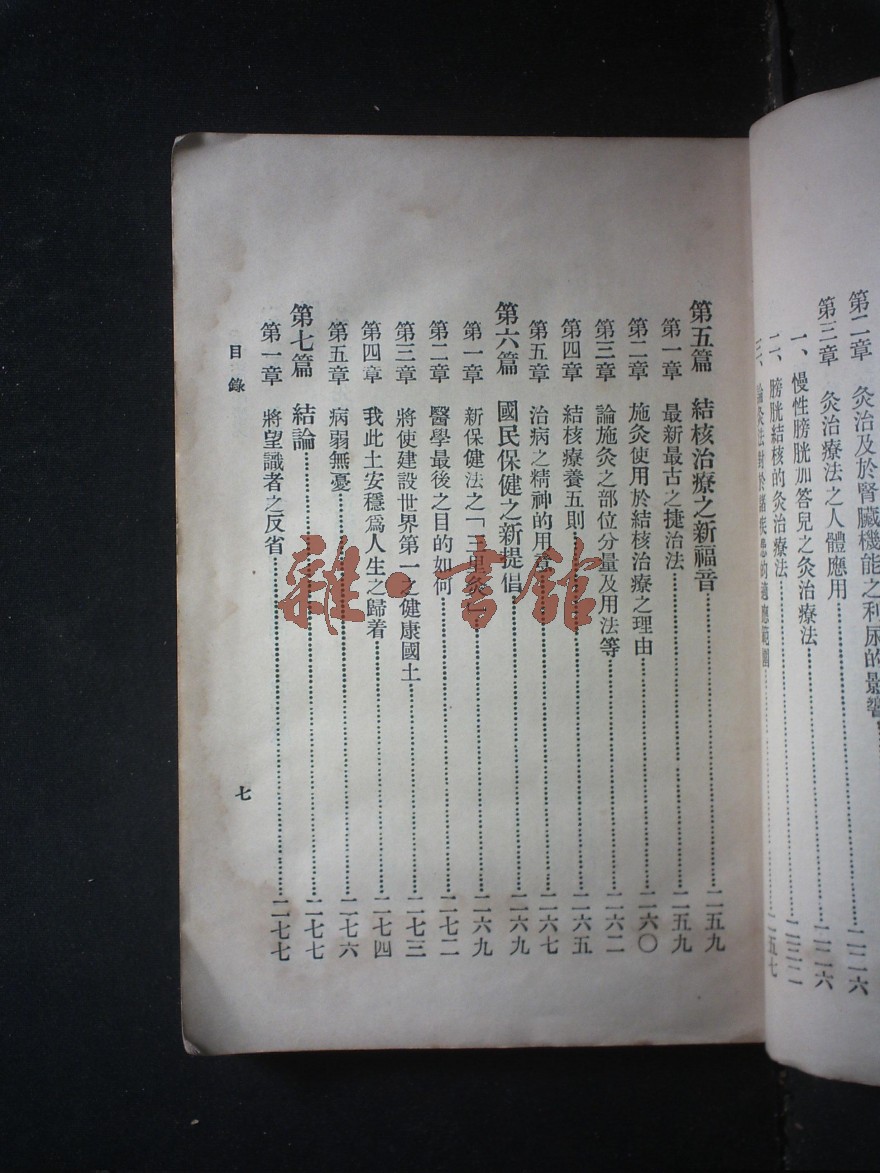 第二章　灸治及於腎臟機能之利尿的影響……二二六
第三章　灸治療法之人體應用……二二六
一、慢性膀胱加答兒之灸治療法……二三二
二、膀胱結核的灸治療法
三、論灸法對於諸疾患的適應範圍……二五七
第五篇　結核治療之新福音……二五九
第一章　最新最古之捷治法……二五九
第二章　施灸使用於結核治療之理由……二六〇
第三章　論施灸之部位分量及用法等……二六二
第四章　結核療養五則……二六五
第五章　治病之精神的用意……二六七
第六篇　國民保健之新提倡……二六九
第一章　新保健法之「三里灸」……二六九
第二章　醫學最後之目的如何……二七二
第三章　將使建設世界第一之健康國土……二七三
第四章　我此土安穩爲人生之歸着……二七四
第五章　病弱無憂……二七六
第七篇　結論……二七七
第一章　將望識者之反省……二七七
目錄
七
雜·書館